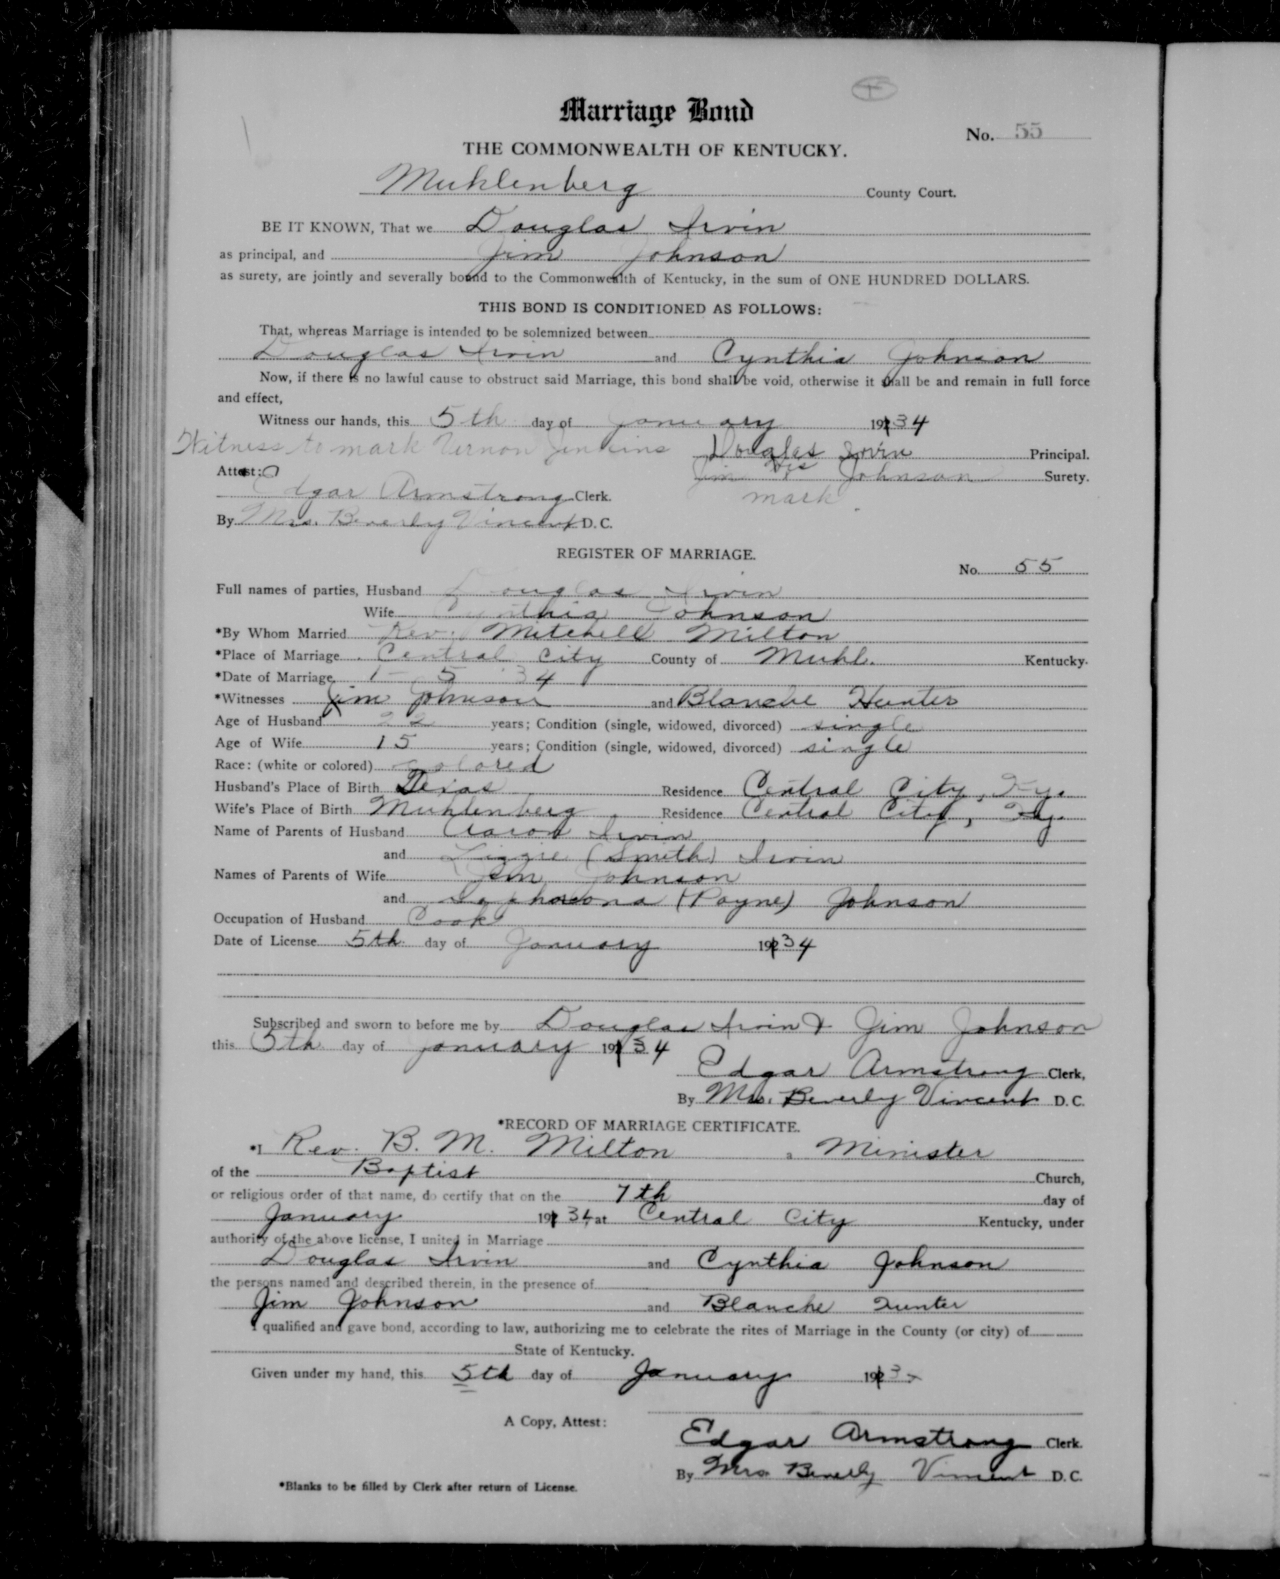 Marriage Bond
No. 55
THE COMMONWEALTH OF KENTUCKY.
Muhlenberg County Court.
BE IT KNOWN, That we Douglas Irvin
as principal, and Jim Johnson
as surety, are jointly and severally bound to the Commonwealth of Kentucky, in the sum of ONE HUNDRED DOLLARS.
THIS BOND IS CONDITIONED AS FOLLOWS:
That, whereas Marriage is intended to be solemnized between
Douglas Irvin and Cynthia Johnson
Now, if there is no lawful cause to obstruct said Marriage, this bond shall be void, otherwise it shall be and remain in full force
and effect,
Witness our hands, this 5th day of January 1934
Witness to mark Vernon Jenkins Douglas Irvin Principal.
Attest: Jim his x Johnson Surety.
mark.
Edgar Armstrong Clerk.
By Mrs. Beverly Vincent D. C.
REGISTER OF MARRIAGE.
No. 55
Full names of parties, Husband Douglas Irvin
Wife Cynthia Johnson
*By Whom Married Rev. Mitchell Milton
*Place of Marriage Central City County of Muhl. Kentucky.
*Date of Marriage 1-5-34
*Witnesses Jim Johnson and Blanche Hunter
Age of Husband 22 years; Condition (single, widowed, divorced) single
Age of Wife 15 years; Condition (single, widowed, divorced) single
Race: (white or colored) colored
Husband's Place of Birth Texas Residence Central City, Ky.
Wife's Place of Birth Muhlenberg Residence Central City, Ky.
Name of Parents of Husband Aaron Irvin
and Lizzie (Smith) Irvin
Names of Parents of Wife Jim Johnson
and (Payne) Johnson
Occupation of Husband Cook
Date of License 5th day of January 1934
Subscribed and sworn to before me by Douglas Irvin & Jim Johnson
this 5th day of January 1934
Edgar Armstrong Clerk,
By Mrs. Beverly Vincent D. C.
*RECORD OF MARRIAGE CERTIFICATE.
*I Rev. B. M. Milton, Minister
of the Baptist Church,
or religious order of that name, do certify that on the 7th day of
January 1934 at Central City Kentucky, under
authority of the above license, I united in Marriage
Douglas Irvin and Cynthia Johnson
the persons named and described therein, in the presence of
Jim Johnson and Blanche Hunter
I qualified and gave bond, according to law, authorizing me to celebrate the rites of Marriage in the County (or city) of
State of Kentucky.
Given under my hand, this 5th day of January 193
A Copy, Attest:
Edgar Armstrong Clerk.
By Mrs Beverly Vincent D. C.
*Blanks to be filled by Clerk after return of License.